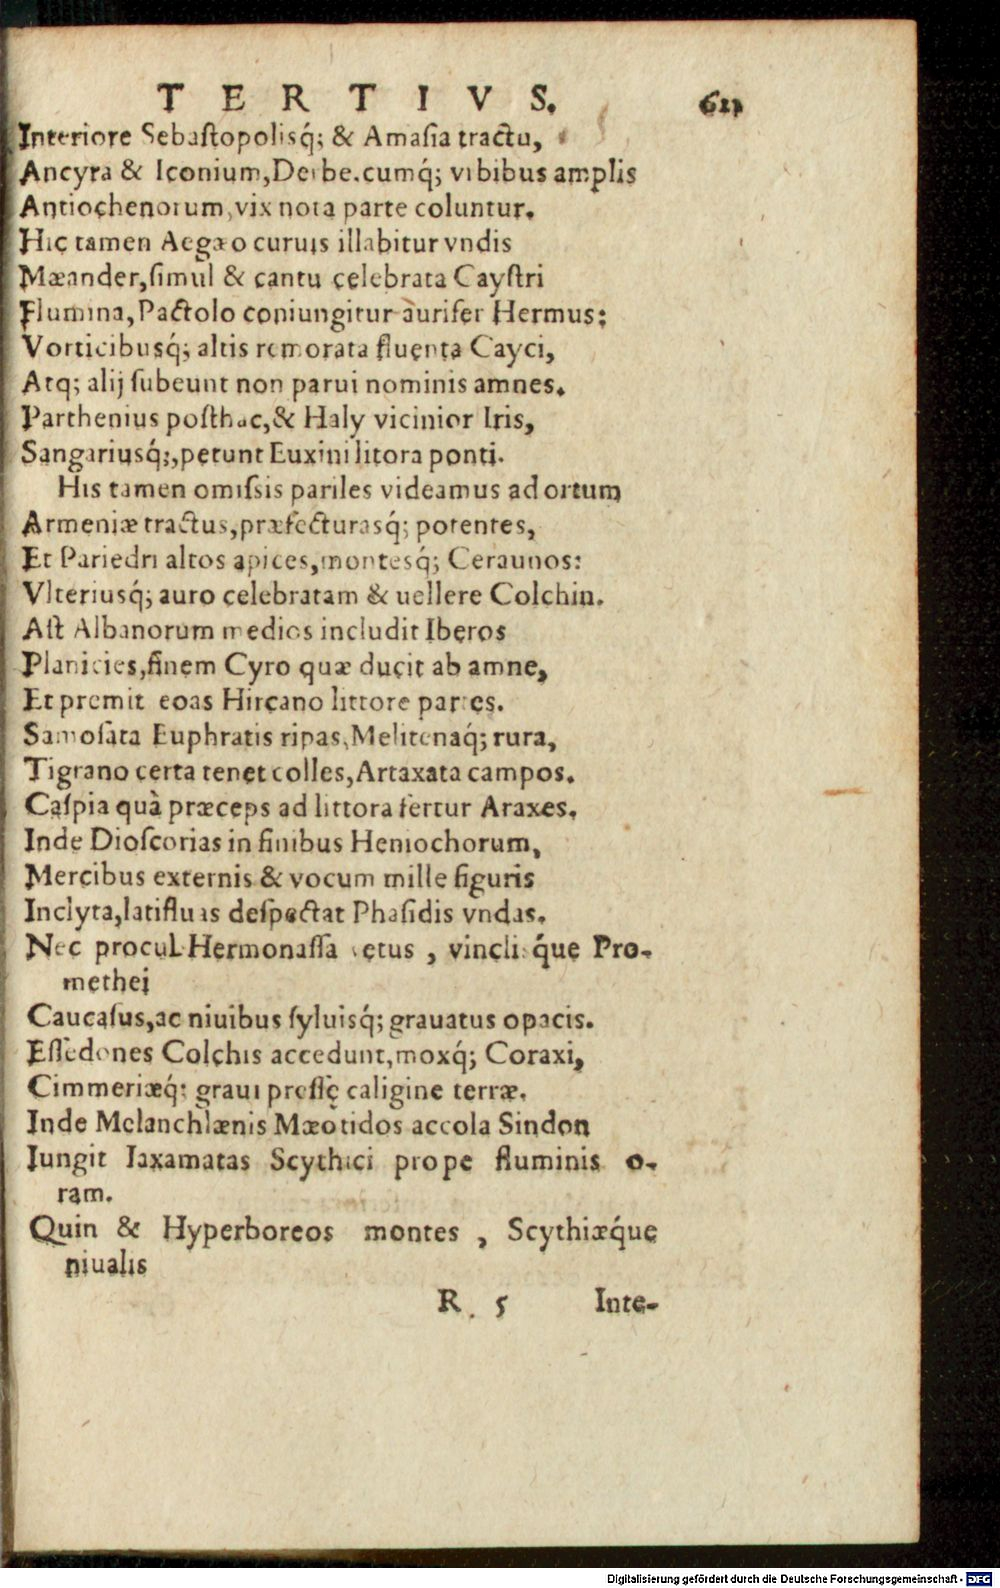 TERTIVS. 
Interiore Sebastopolisq́; & Amasia tractu,
Ancyra & Iconium, Derbe. cumq́; vibibus amplis
Antiochenorum, vix nota parte coluntur.
Hic tamen Aegæo curuis illabitur vndis
Mæander, simul & cantu celebrata Caystri
Flumina, Pactolo coniungitur aurifer Hermus:
Vorticibusq́; altis remorata fluenta Cayci,
Atq; alij subeunt non parui nominis amnes.
Parthenius posthac, & Haly vicinior Iris,
Sangariusq́;, petunt Euxini litora ponti.
His tamen omissis pariles videamus ad ortum
Armeniæ tractus, præfecturasq́; potentes,
Et Pariedri altos apices, montesq́; Ceraunos:
Vlteriusq́; auro celebratam & uellere Colchin.
Ast Albanorum medios includit Iberos
Planicies, finem Cyro quæ ducit ab amne,
Et premit eoas Hircano littore partes.
Samosata Euphratis ripas, Melitenaq́; rura,
Tigrano certa tenet colles, Artaxata campos.
Caspia quà præceps ad littora fertur Araxes.
Inde Dioscorias in finibus Heniochorum,
Mercibus externis & vocum mille figuris
Inclyta, latifluas despectat Phasidis vndas.
Nec procul Hermonassa vetus, vinclisq́ue Pro-
methei
Caucasus, ac niuibus syluisq́; grauatus opacis.
Essedones Colchis accedunt, moxq́; Coraxi,
Cimmeriæq́; graui pressę caligine terræ.
Inde Melanchlænis Mæotidos accola Sindon
Iungit Iaxamatas Scythici prope fluminis o-
ram.
Quin & Hyperboreos montes, Scythiæq́ue
niualis
R 5 Inte-
Digitalisierung gefördert durch die Deutsche Forschungsgemeinschaft - DFG